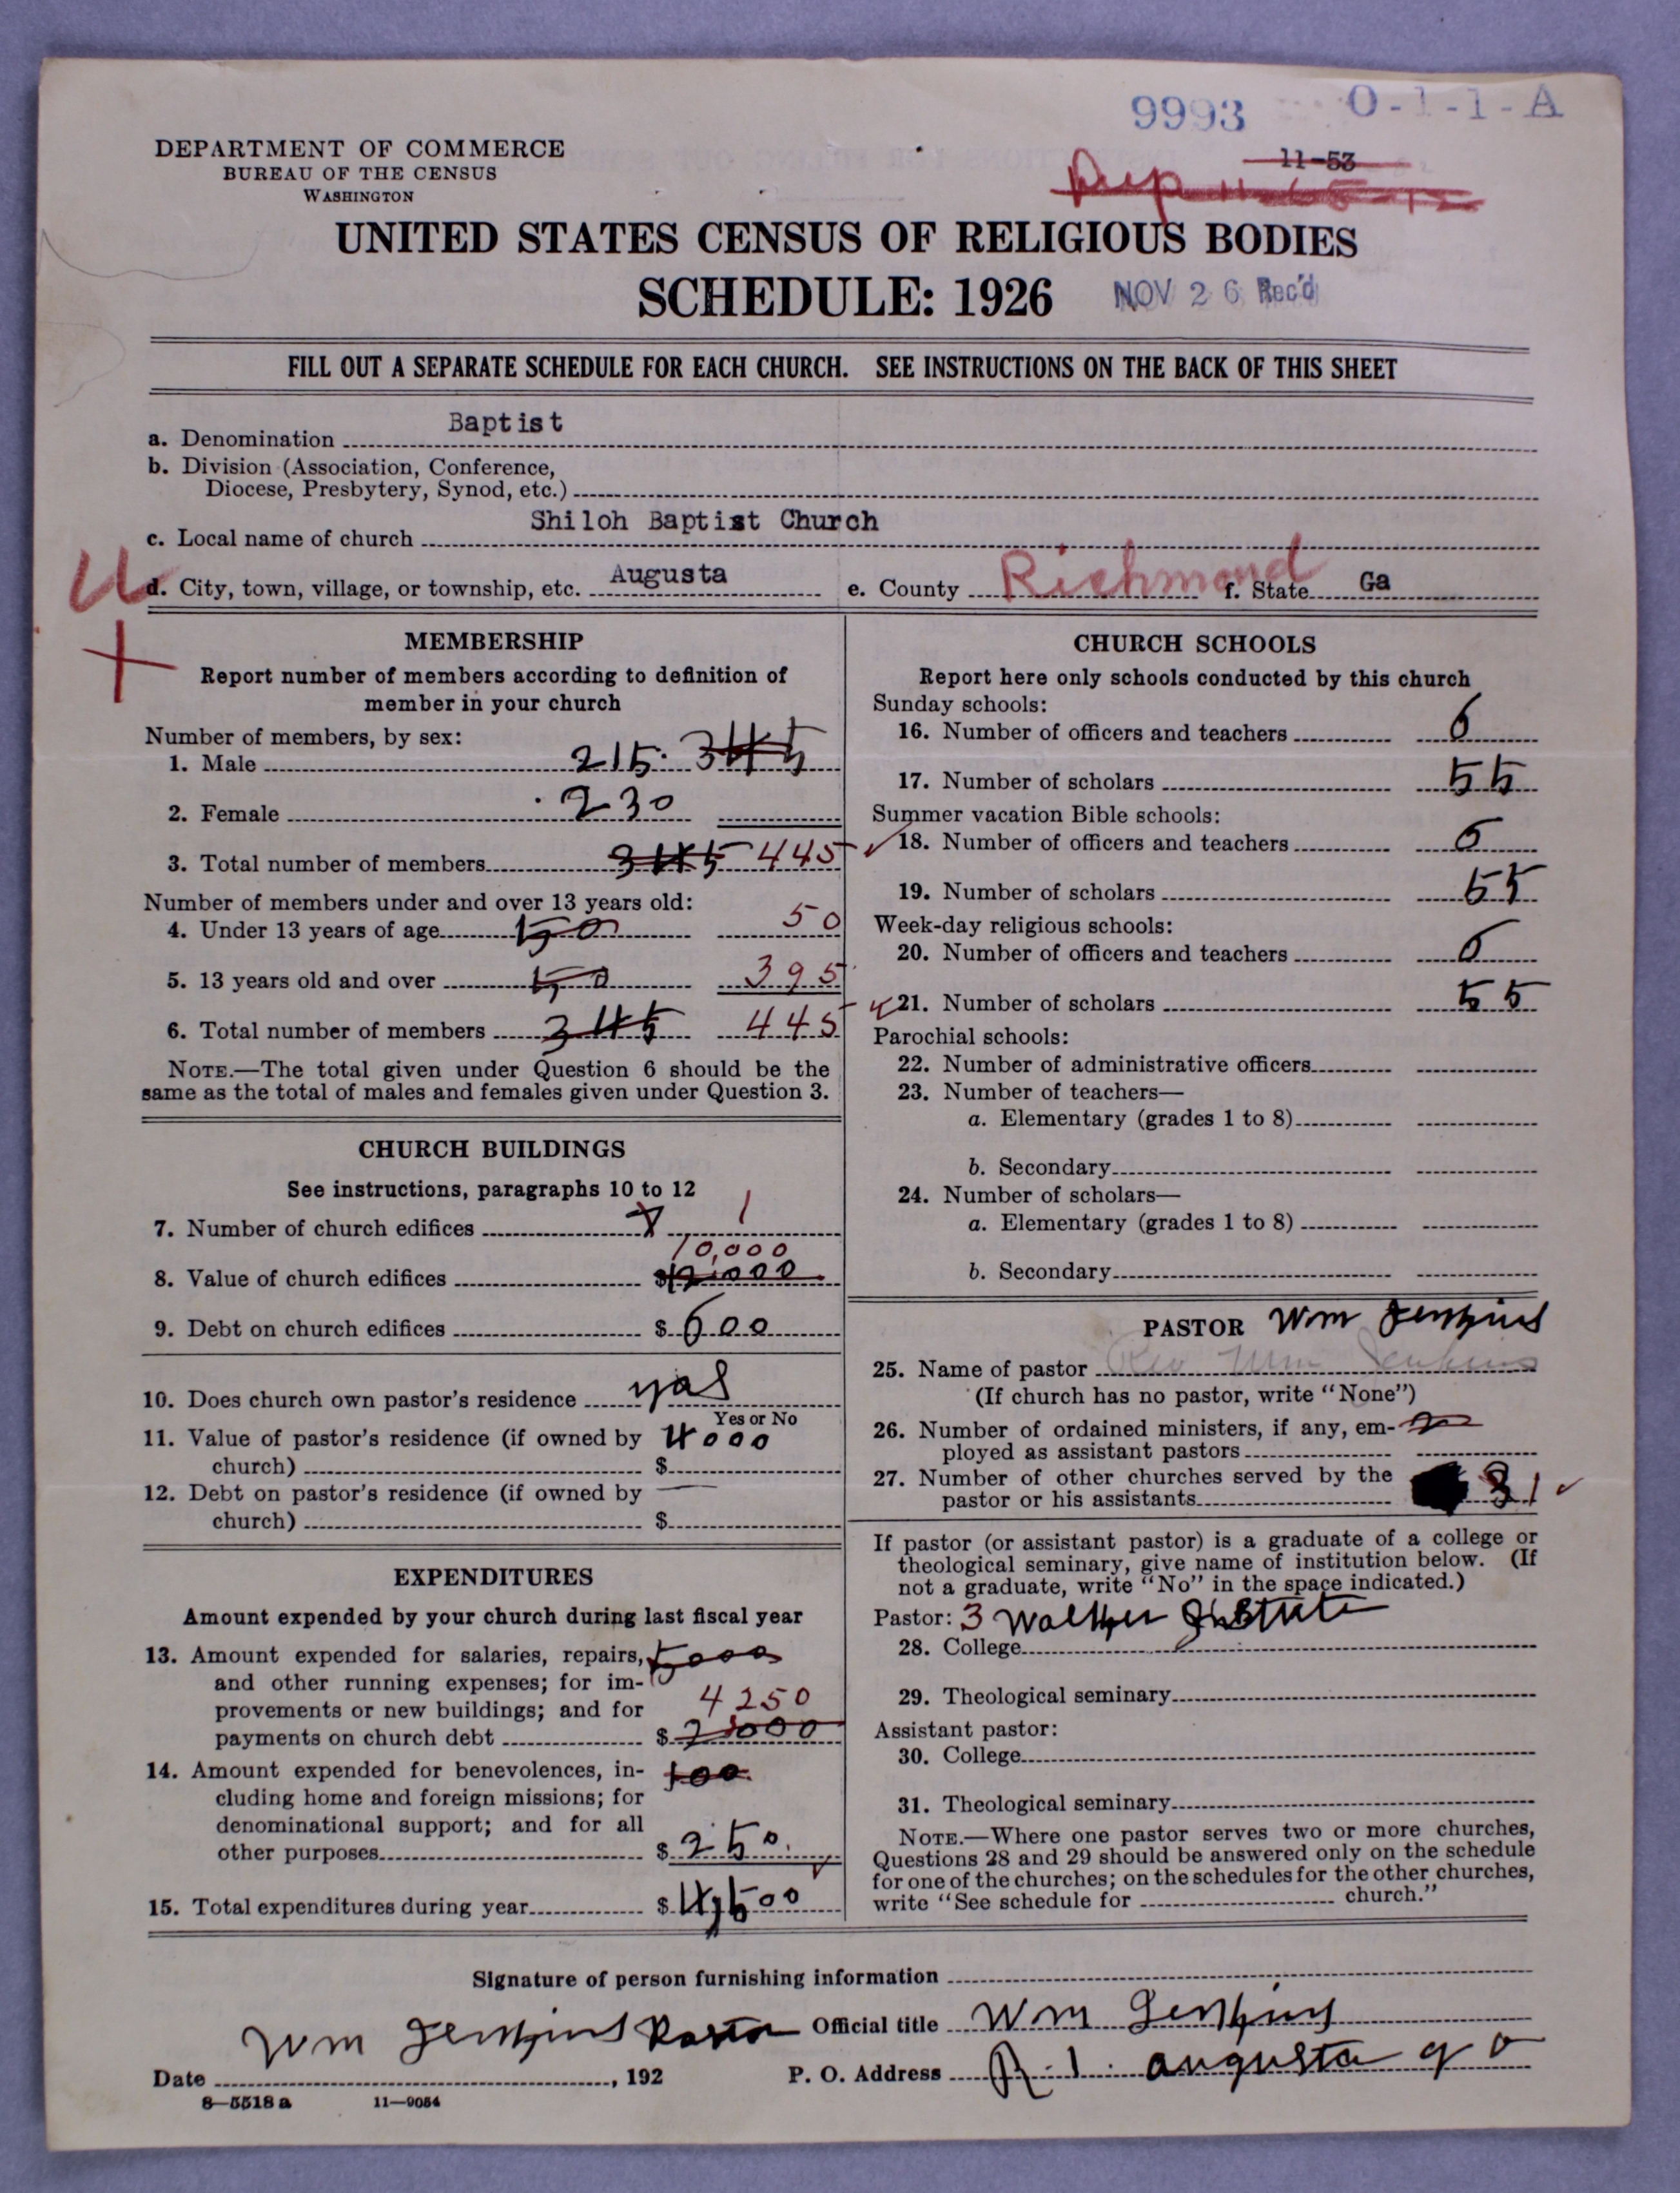 9993 0-1-1-A
DEPARTMENT OF COMMERCE
BUREAU OF THE CENSUS
WASHINGTON
11-53
Dup
UNITED STATES CENSUS OF RELIGIOUS BODIES
SCHEDULE: 1926 NOV 26 Rec'd
FILL OUT A SEPARATE SCHEDULE FOR EACH CHURCH. SEE INSTRUCTIONS ON THE BACK OF THIS SHEET
a. Denomination Baptist
b. Division (Association, Conference,
Diocese, Presbytery, Synod, etc.)
c. Local name of church Shiloh Baptist Church
U d. City, town, village, or township, etc. Augusta e. County Richmond f. State Ga
MEMBERSHIP
Report number of members according to definition of
member in your church
Number of members, by sex:
1. Male 215 345
2. Female 230
3. Total number of members 345 445
Number of members under and over 13 years old:
4. Under 13 years of age 50 50
5. 13 years old and over 50 395
6. Total number of members 345 445
NOTE.—The total given under Question 6 should be the
same as the total of males and females given under Question 3.
CHURCH BUILDINGS
See instructions, paragraphs 10 to 12
7. Number of church edifices 1
10,000
8. Value of church edifices $12000
9. Debt on church edifices $600
10. Does church own pastor's residence yas
Yes or No
11. Value of pastor's residence (if owned by 4000
church) $
12. Debt on pastor's residence (if owned by —
church) $
EXPENDITURES
Amount expended by your church during last fiscal year
13. Amount expended for salaries, repairs, 5000
and other running expenses; for im-
provements or new buildings; and for 4250
payments on church debt $2000
14. Amount expended for benevolences, in- 100
cluding home and foreign missions; for
denominational support; and for all
other purposes $250.
15. Total expenditures during year $4,500
CHURCH SCHOOLS
Report here only schools conducted by this church
Sunday schools:
16. Number of officers and teachers 6
17. Number of scholars 55
Summer vacation Bible schools:
18. Number of officers and teachers 6
19. Number of scholars 55
Week-day religious schools:
20. Number of officers and teachers 6
21. Number of scholars 55
Parochial schools:
22. Number of administrative officers
23. Number of teachers—
a. Elementary (grades 1 to 8)
b. Secondary
24. Number of scholars—
a. Elementary (grades 1 to 8)
b. Secondary
PASTOR Wm Jenkins
25. Name of pastor Rev Wm Jenkins
(If church has no pastor, write "None")
26. Number of ordained ministers, if any, em-
ployed as assistant pastors
27. Number of other churches served by the
pastor or his assistants 3 1
If pastor (or assistant pastor) is a graduate of a college or
theological seminary, give name of institution below. (If
not a graduate, write "No" in the space indicated.)
Pastor: 3
28. College
29. Theological seminary
Assistant pastor:
30. College
31. Theological seminary
NOTE.—Where one pastor serves two or more churches,
Questions 28 and 29 should be answered only on the schedule
for one of the churches; on the schedules for the other churches,
write "See schedule for church."
Signature of person furnishing information
Wm Jenkins Pastor Official title Wm Jenkins
Date , 192 P. O. Address R. 1. augusta ga
8—5518a 11—9054